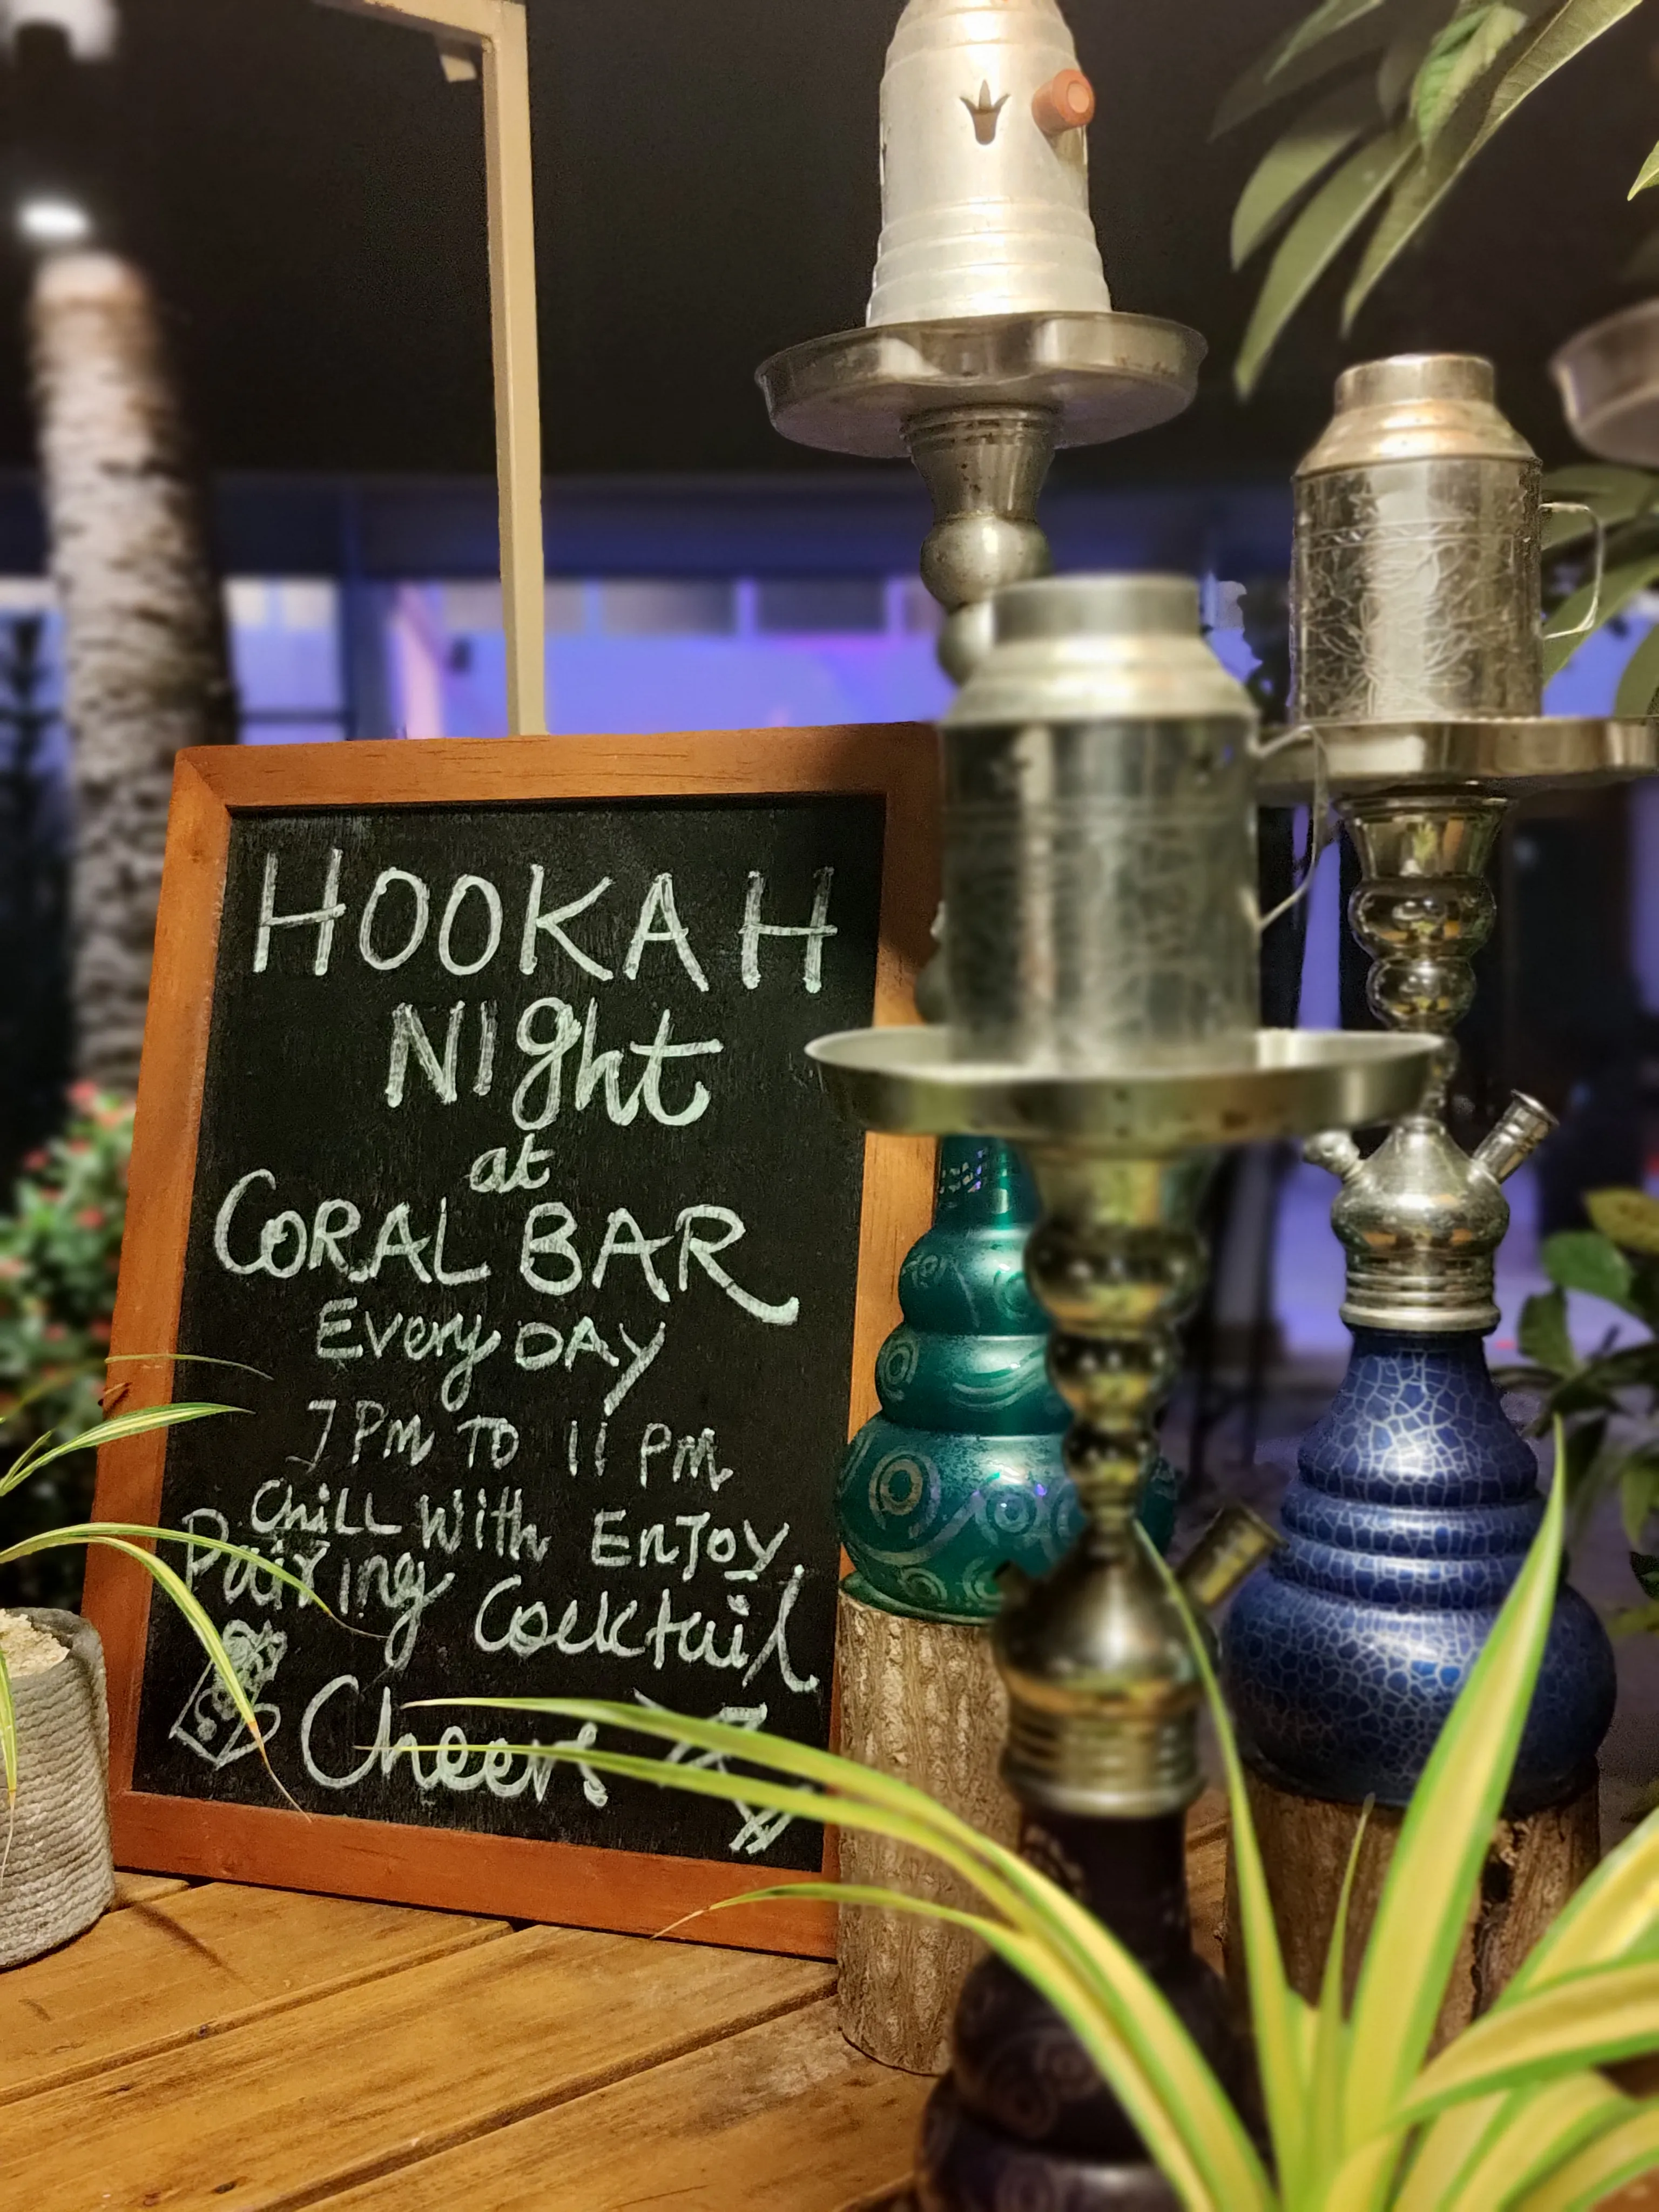 HOOKAH
NIght
at
CORAL BAR
Every DAY
7 PM TO 11 PM
Chill With EnJoy
Pairing Cocktail
Cheers